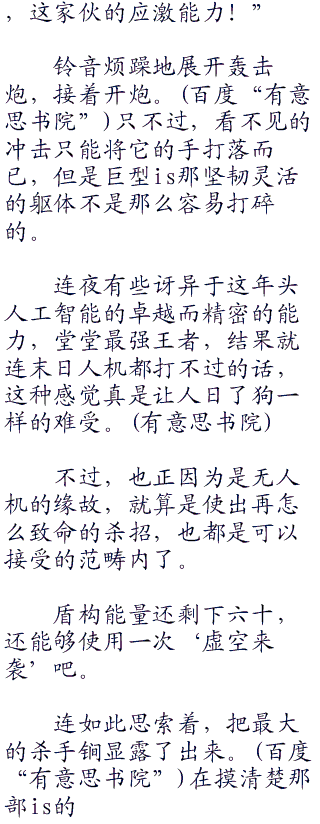 ，这家伙的应激能力！”
铃音烦躁地展开轰击
炮，接着开炮。(百度“有意
思书院”)只不过，看不见的
冲击只能将它的手打落而
已，但是巨型is那坚韧灵活
的躯体不是那么容易打碎
的。
连夜有些讶异于这年头
人工智能的卓越而精密的能
力，堂堂最强王者，结果就
连末日人机都打不过的话，
这种感觉真是让人日了狗一
样的难受。(有意思书院)
不过，也正因为是无人
机的缘故，就算是使出再怎
么致命的杀招，也都是可以
接受的范畴内了。
盾构能量还剩下六十，
还能够使用一次‘虚空来
袭’吧。
连如此思索着，把最大
的杀手锏显露了出来。(百度
“有意思书院”)在摸清楚那
部is的